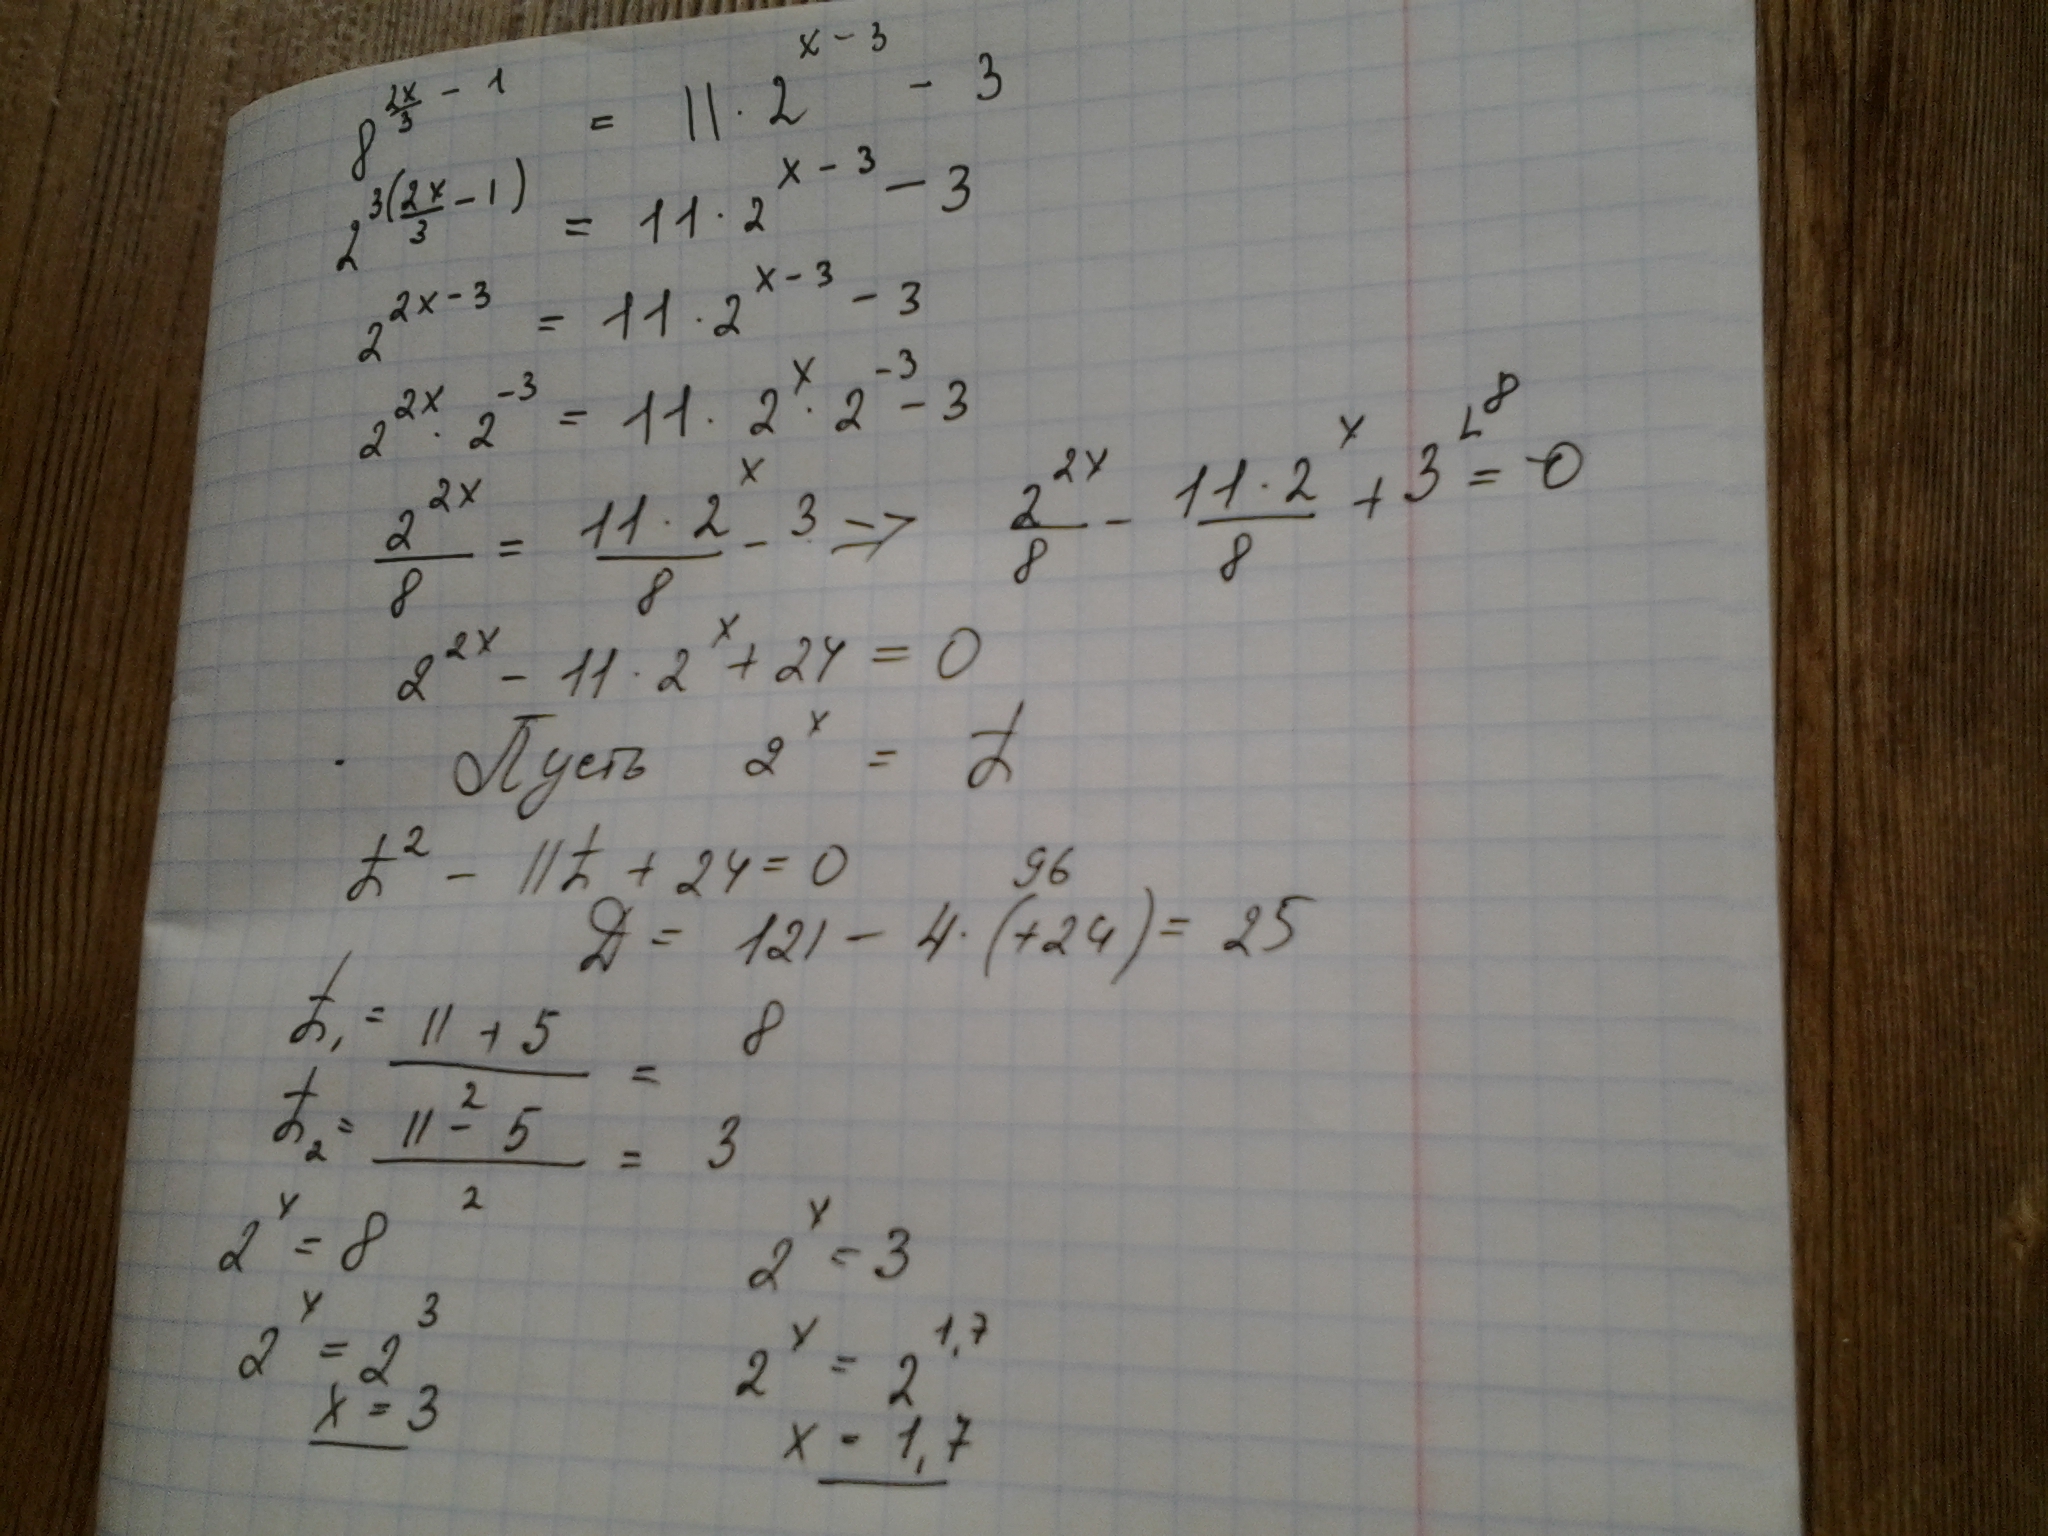 8^(2x/3 - 1) = 11 · 2^(x-3) - 3
2^(3(2x/3 - 1)) = 11 · 2^(x-3) - 3
2^(2x-3) = 11 · 2^(x-3) - 3
2^(2x) · 2^(-3) = 11 · 2^x · 2^(-3) - 3
2^(2x)/8 = 11 · 2^x/8 - 3 => 2^(2x)/8 - 11 · 2^x/8 + 3 ∟8 = 0
2^(2x) - 11 · 2^x + 24 = 0
Пусть 2^x = t
t² - 11t + 24 = 0
96
D = 121 - 4 · (+24) = 25
t₁ = (11 + 5)/2 = 8
t₂ = (11 - 5)/2 = 3
2^x = 8 2^x = 3
2^x = 2^3 2^x = 2^(1,7)
x = 3 x = 1,7